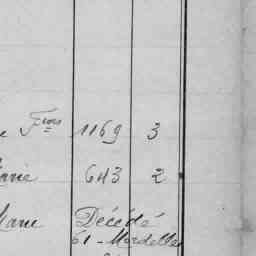 e Fçois 1169 3
arie 643 2
Marie Décédé
61 - Mordelles